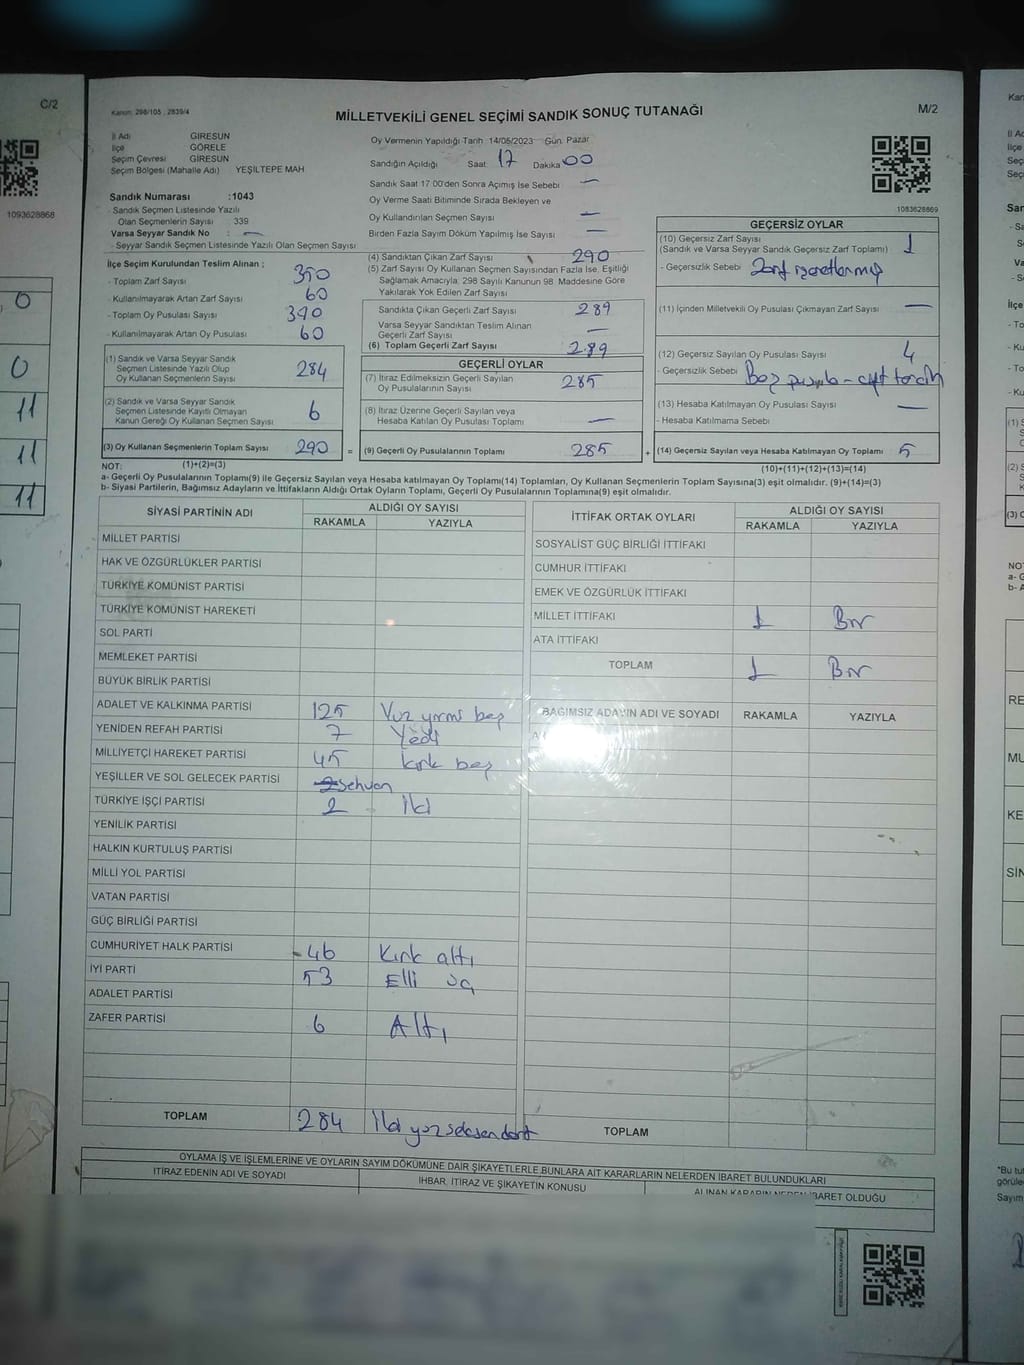 C/2
1093628868
0
0
11
11
11
Kanun: 298/105 , 2839/4
MİLLETVEKİLİ GENEL SEÇİMİ SANDIK SONUÇ TUTANAĞI
M/2
İl Adı GİRESUN
İlçe GÖRELE
Seçim Çevresi GİRESUN
Seçim Bölgesi (Mahalle Adı) YEŞİLTEPE MAH
Oy Vermenin Yapıldığı Tarih 14/05/2023 Gün Pazar
Sandığın Açıldığı Saat 17 Dakika 00
Sandık Saat 17.00'den Sonra Açımış İse Sebebi —
Oy Verme Saati Bitiminde Sırada Bekleyen ve
Oy Kullandırılan Seçmen Sayısı —
Birden Fazla Sayım Döküm Yapılmış İse Sayısı —
1083628869
Sandık Numarası :1043
- Sandık Seçmen Listesinde Yazılı
Olan Seçmenlerin Sayısı 339
Varsa Seyyar Sandık No : —
- Seyyar Sandık Seçmen Listesinde Yazılı Olan Seçmen Sayısı
İlçe Seçim Kurulundan Teslim Alınan ;
- Toplam Zarf Sayısı 350
- Kullanılmayarak Artan Zarf Sayısı 60
- Toplam Oy Pusulası Sayısı 340
- Kullanılmayarak Artan Oy Pusulası 60
(1) Sandık ve Varsa Seyyar Sandık
Seçmen Listesinde Yazılı Olup
Oy Kullanan Seçmenlerin Sayısı 284
(2) Sandık ve Varsa Seyyar Sandık
Seçmen Listesinde Kayıtlı Olmayan
Kanun Gereği Oy Kullanan Seçmen Sayısı 6
(3) Oy Kullanan Seçmenlerin Toplam Sayısı 290 =
(4) Sandıktan Çıkan Zarf Sayısı 290
(5) Zarf Sayısı Oy Kullanan Seçmen Sayısından Fazla İse, Eşitliği
Sağlamak Amacıyla; 298 Sayılı Kanunun 98. Maddesine Göre
Yakılarak Yok Edilen Zarf Sayısı
Sandıkta Çıkan Geçerli Zarf Sayısı 289
Varsa Seyyar Sandıktan Teslim Alınan
Geçerli Zarf Sayısı —
(6) Toplam Geçerli Zarf Sayısı 289
GEÇERLİ OYLAR
(7) İtiraz Edilmeksizin Geçerli Sayılan
Oy Pusulalarının Sayısı 285
(8) İtiraz Üzerine Geçerli Sayılan veya
Hesaba Katılan Oy Pusulası Toplamı —
(9) Geçerli Oy Pusulalarının Toplamı 285 +
GEÇERSİZ OYLAR
(10) Geçersiz Zarf Sayısı 1
(Sandık ve Varsa Seyyar Sandık Geçersiz Zarf Toplamı)
- Geçersizlik Sebebi Zarf işaretlenmiş
(11) İçinden Milletvekili Oy Pusulası Çıkmayan Zarf Sayısı —
(12) Geçersiz Sayılan Oy Pusulası Sayısı 4
- Geçersizlik Sebebi Boş pusula - çift tercih
(13) Hesaba Katılmayan Oy Pusulası Sayısı —
- Hesaba Katılmama Sebebi
(14) Geçersiz Sayılan veya Hesaba Katılmayan Oy Toplamı 5
NOT: (1)+(2)=(3) (10)+(11)+(12)+(13)=(14)
a- Geçerli Oy Pusulalarının Toplamı(9) ile Geçersiz Sayılan veya Hesaba katılmayan Oy Toplamı(14) Toplamları, Oy Kullanan Seçmenlerin Toplam Sayısına(3) eşit olmalıdır. (9)+(14)=(3)
b- Siyasi Partilerin, Bağımsız Adayların ve İttifakların Aldığı Ortak Oyların Toplamı, Geçerli Oy Pusulalarının Toplamına(9) eşit olmalıdır.
SİYASİ PARTİNİN ADI ALDIĞI OY SAYISI
RAKAMLA YAZIYLA
MİLLET PARTİSİ
HAK VE ÖZGÜRLÜKLER PARTİSİ
TÜRKİYE KOMÜNİST PARTİSİ
TÜRKİYE KOMÜNİST HAREKETİ
SOL PARTİ
MEMLEKET PARTİSİ
BÜYÜK BİRLİK PARTİSİ
ADALET VE KALKINMA PARTİSİ 125 Yüz yirmi beş
YENİDEN REFAH PARTİSİ 7 Yedi
MİLLİYETÇİ HAREKET PARTİSİ 45 kırk beş
YEŞİLLER VE SOL GELECEK PARTİSİ 2 sehven
TÜRKİYE İŞÇİ PARTİSİ 2 İki
YENİLİK PARTİSİ
HALKIN KURTULUŞ PARTİSİ
MİLLİ YOL PARTİSİ
VATAN PARTİSİ
GÜÇ BİRLİĞİ PARTİSİ
CUMHURİYET HALK PARTİSİ 46 Kırk altı
İYİ PARTİ 53 Elli üç
ADALET PARTİSİ
ZAFER PARTİSİ 6 Altı
TOPLAM 284 İki yüz seksen dört
İTTİFAK ORTAK OYLARI ALDIĞI OY SAYISI
RAKAMLA YAZIYLA
SOSYALİST GÜÇ BİRLİĞİ İTTİFAKI
CUMHUR İTTİFAKI
EMEK VE ÖZGÜRLÜK İTTİFAKI
MİLLET İTTİFAKI 1 Bir
ATA İTTİFAKI
TOPLAM 1 Bir
BAĞIMSIZ ADAYIN ADI VE SOYADI RAKAMLA YAZIYLA
TOPLAM
OYLAMA İŞ VE İŞLEMLERİNE VE OYLARIN SAYIM DÖKÜMÜNE DAİR ŞİKAYETLERLE,BUNLARA AİT KARARLARIN NELERDEN İBARET BULUNDUKLARI
İTİRAZ EDENİN ADI VE SOYADI
İHBAR, İTİRAZ VE ŞİKAYETİN KONUSU
ALINAN KARARIN NEDEN İBARET OLDUĞU